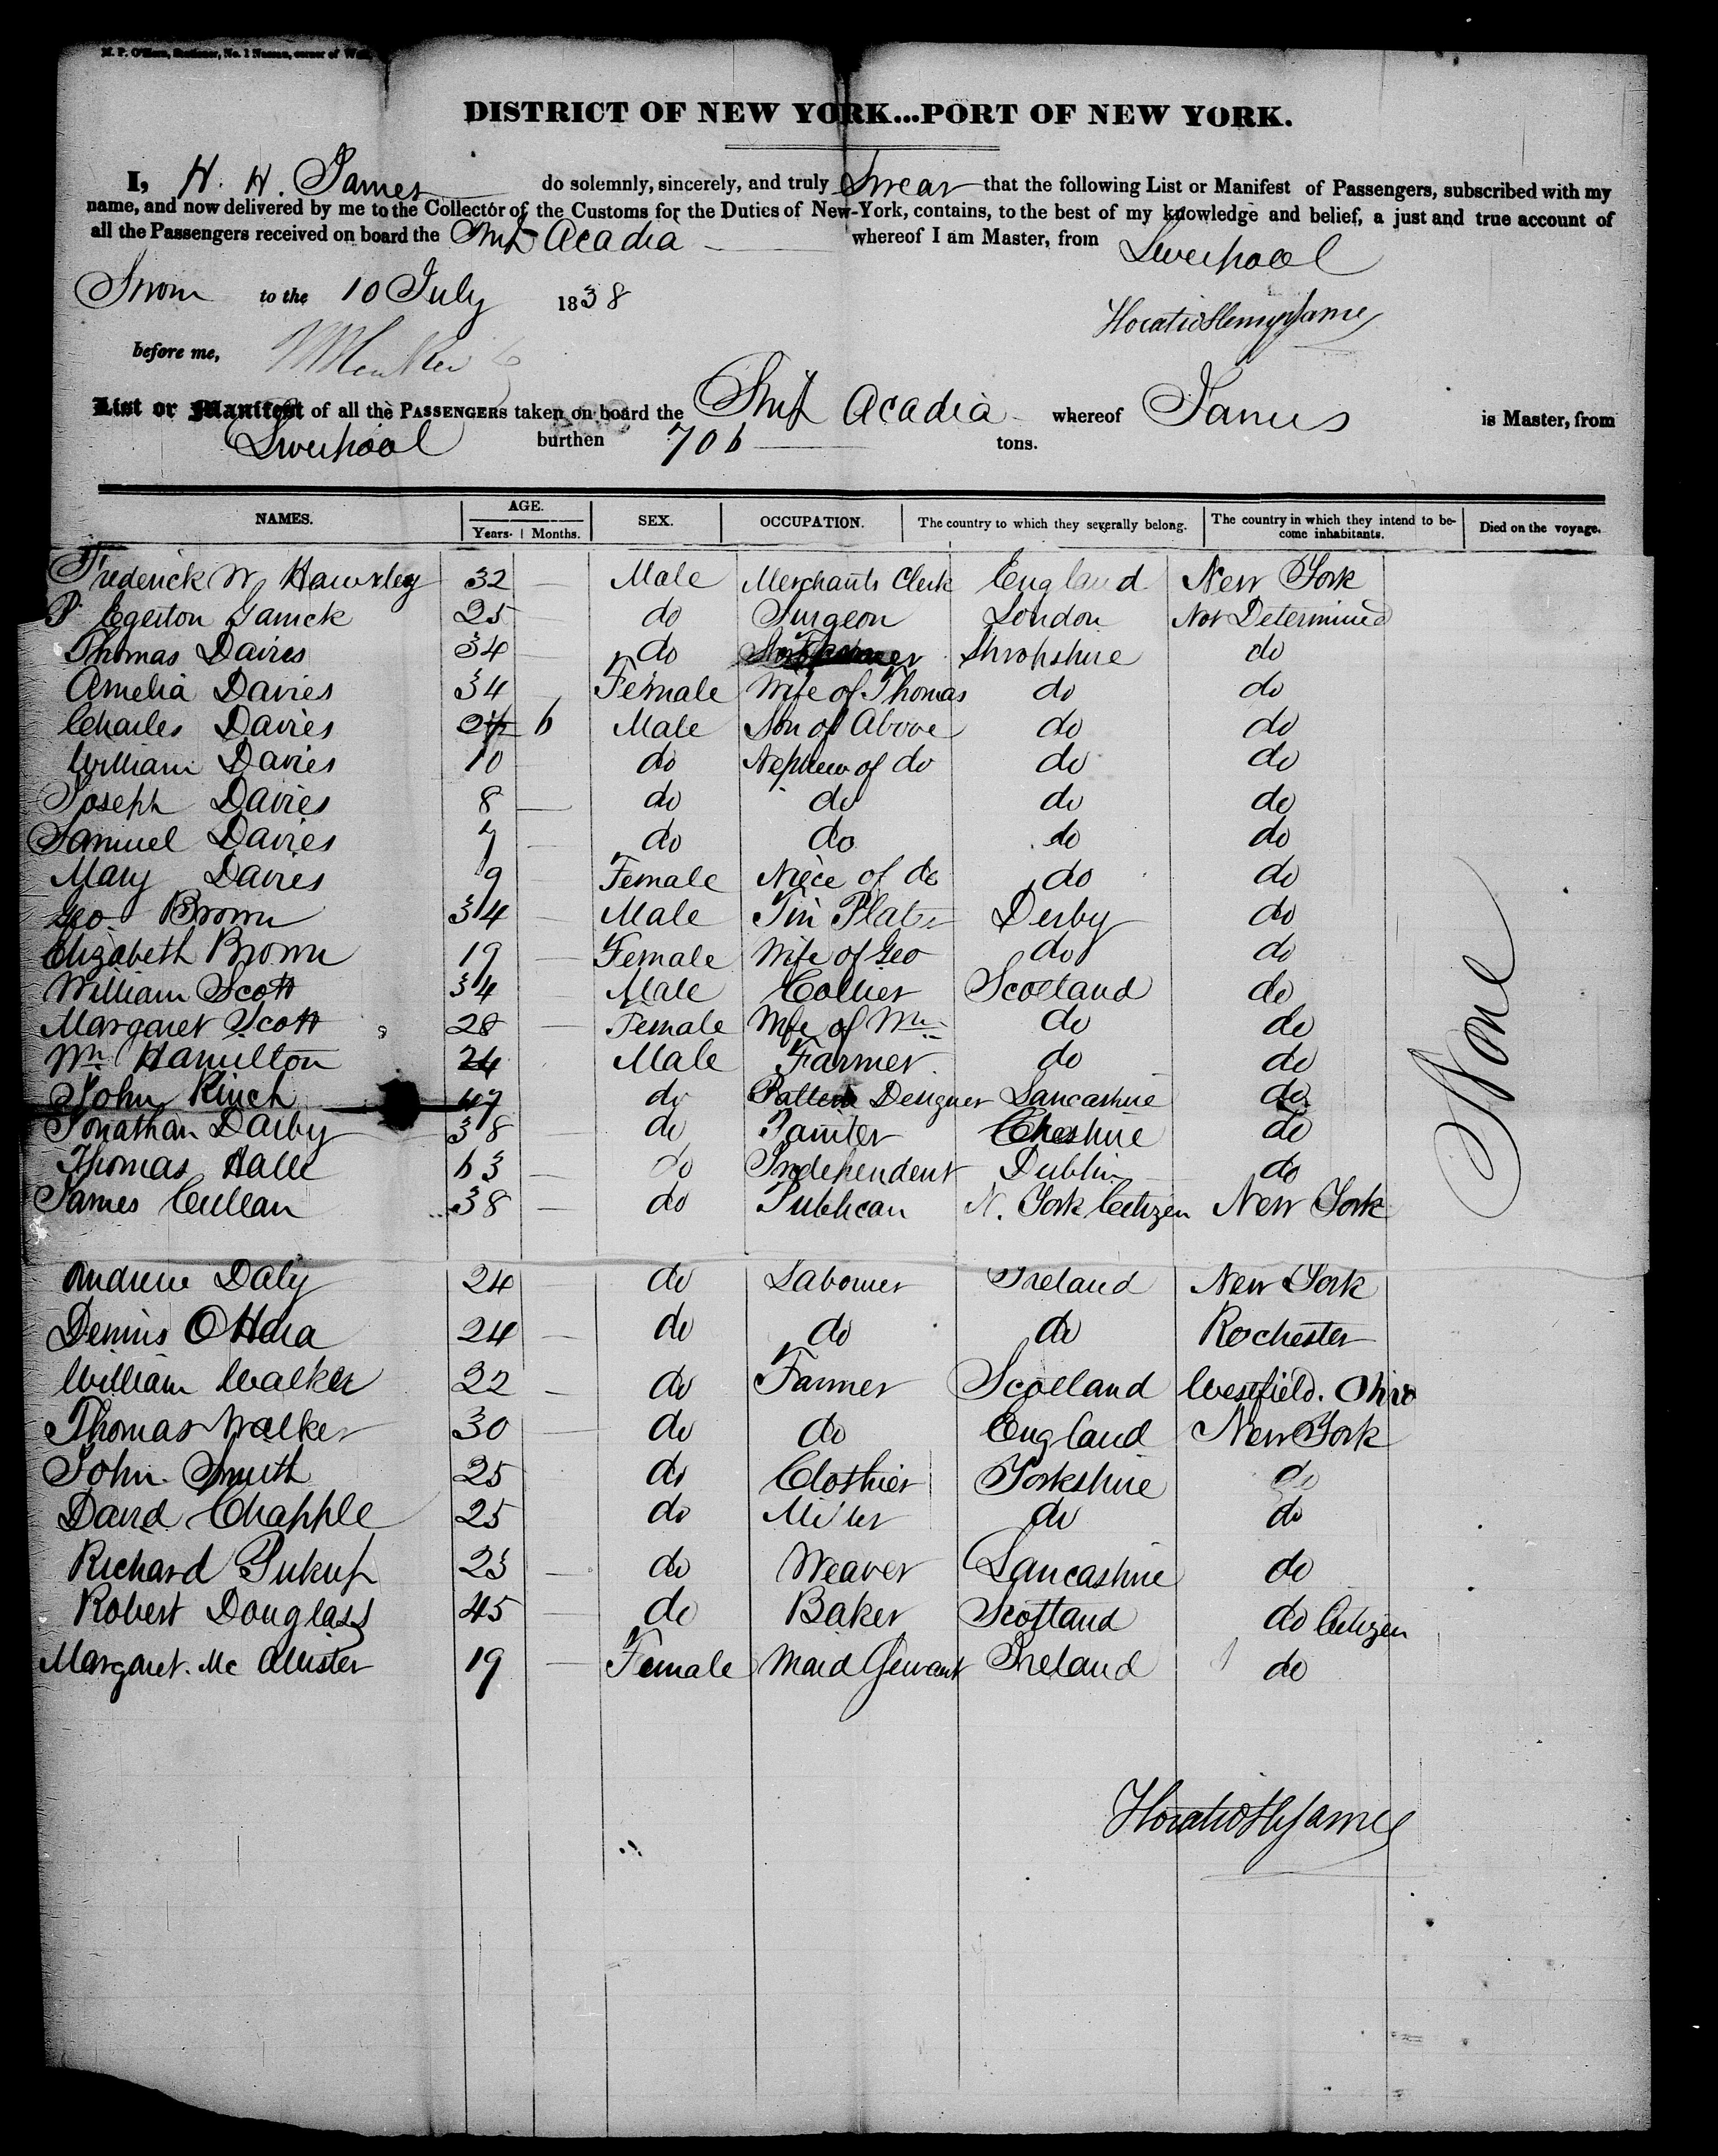 M. P. O'Hern, Stationer, No. 1 Nassau, corner of Wall
DISTRICT OF NEW YORK...PORT OF NEW YORK.
I, H. H. James do solemnly, sincerely, and truly Swear that the following List or Manifest of Passengers, subscribed with my
name, and now delivered by me to the Collector of the Customs for the Duties of New-York, contains, to the best of my knowledge and belief, a just and true account of
all the Passengers received on board the Ship Acadia whereof I am Master, from Liverpool
Sworn to the 10 July 1838
Horatio Henry James
before me,
List or Manifest of all the PASSENGERS taken on board the Ship Acadia whereof James is Master, from
Liverpool burthen 706 tons.
NAMES. AGE. Years. Months. SEX. OCCUPATION. The country to which they severally belong. The country in which they intend to become inhabitants. Died on the voyage.
Frederick W Hawxley 32 Male Merchants Clerk England New York
P Egerton Garrick 25 do Surgeon London Not Determined
Thomas Davies 34 do Farmer Shropshire do
Amelia Davies 34 Female Wife of Thomas do do
Charles Davies 6 Male Son of Above do do
William Davies 10 do Nephew of do do do
Joseph Davies 8 do do do do
Samuel Davies 7 do do do do
Mary Davies 9 Female Niece of do do do
Geo. Brown 34 Male Tin Plate Derby do
Elizabeth Brown 19 Female Wife of Geo do do
William Scott 34 Male Collier Scotland do
Margaret Scott 28 Female Wife of Wm do do
Wm Hamilton 24 Male Farmer do do
John Kinch 47 do Pattern Designer Lancashire do
Jonathan Darby 38 do Painter Cheshire do
Thomas Halle 63 do Independent Dublin do
James Cullean 38 do Publican N. York Citizen New York
None
Andrew Daly 24 do Labourer Ireland New York
Dennis OHara 24 do do do Rochester
William Walker 22 do Farmer Scotland Westfield. Ohio
Thomas Walker 30 do do England New York
John Smith 25 do Clothier Yorkshire do
David Chapple 25 do Miller do do
Richard Jukup 23 do Weaver Lancashire do
Robert Douglass 45 do Baker Scotland do Citizen
Margaret. Mc Allister 19 Female Maid Servant Ireland do
Horatio H James